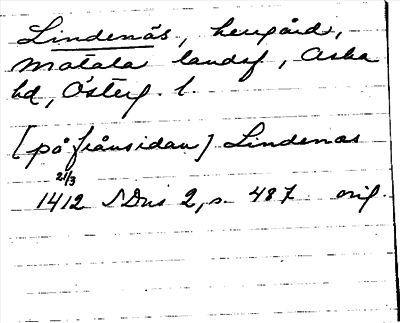 Lindenäs, herrgård,
Motala landsf, Aska
hd, Österg. l.
[på frånsidan] Lindenas
21/3
1412 SDns 2, s. 487 orig.